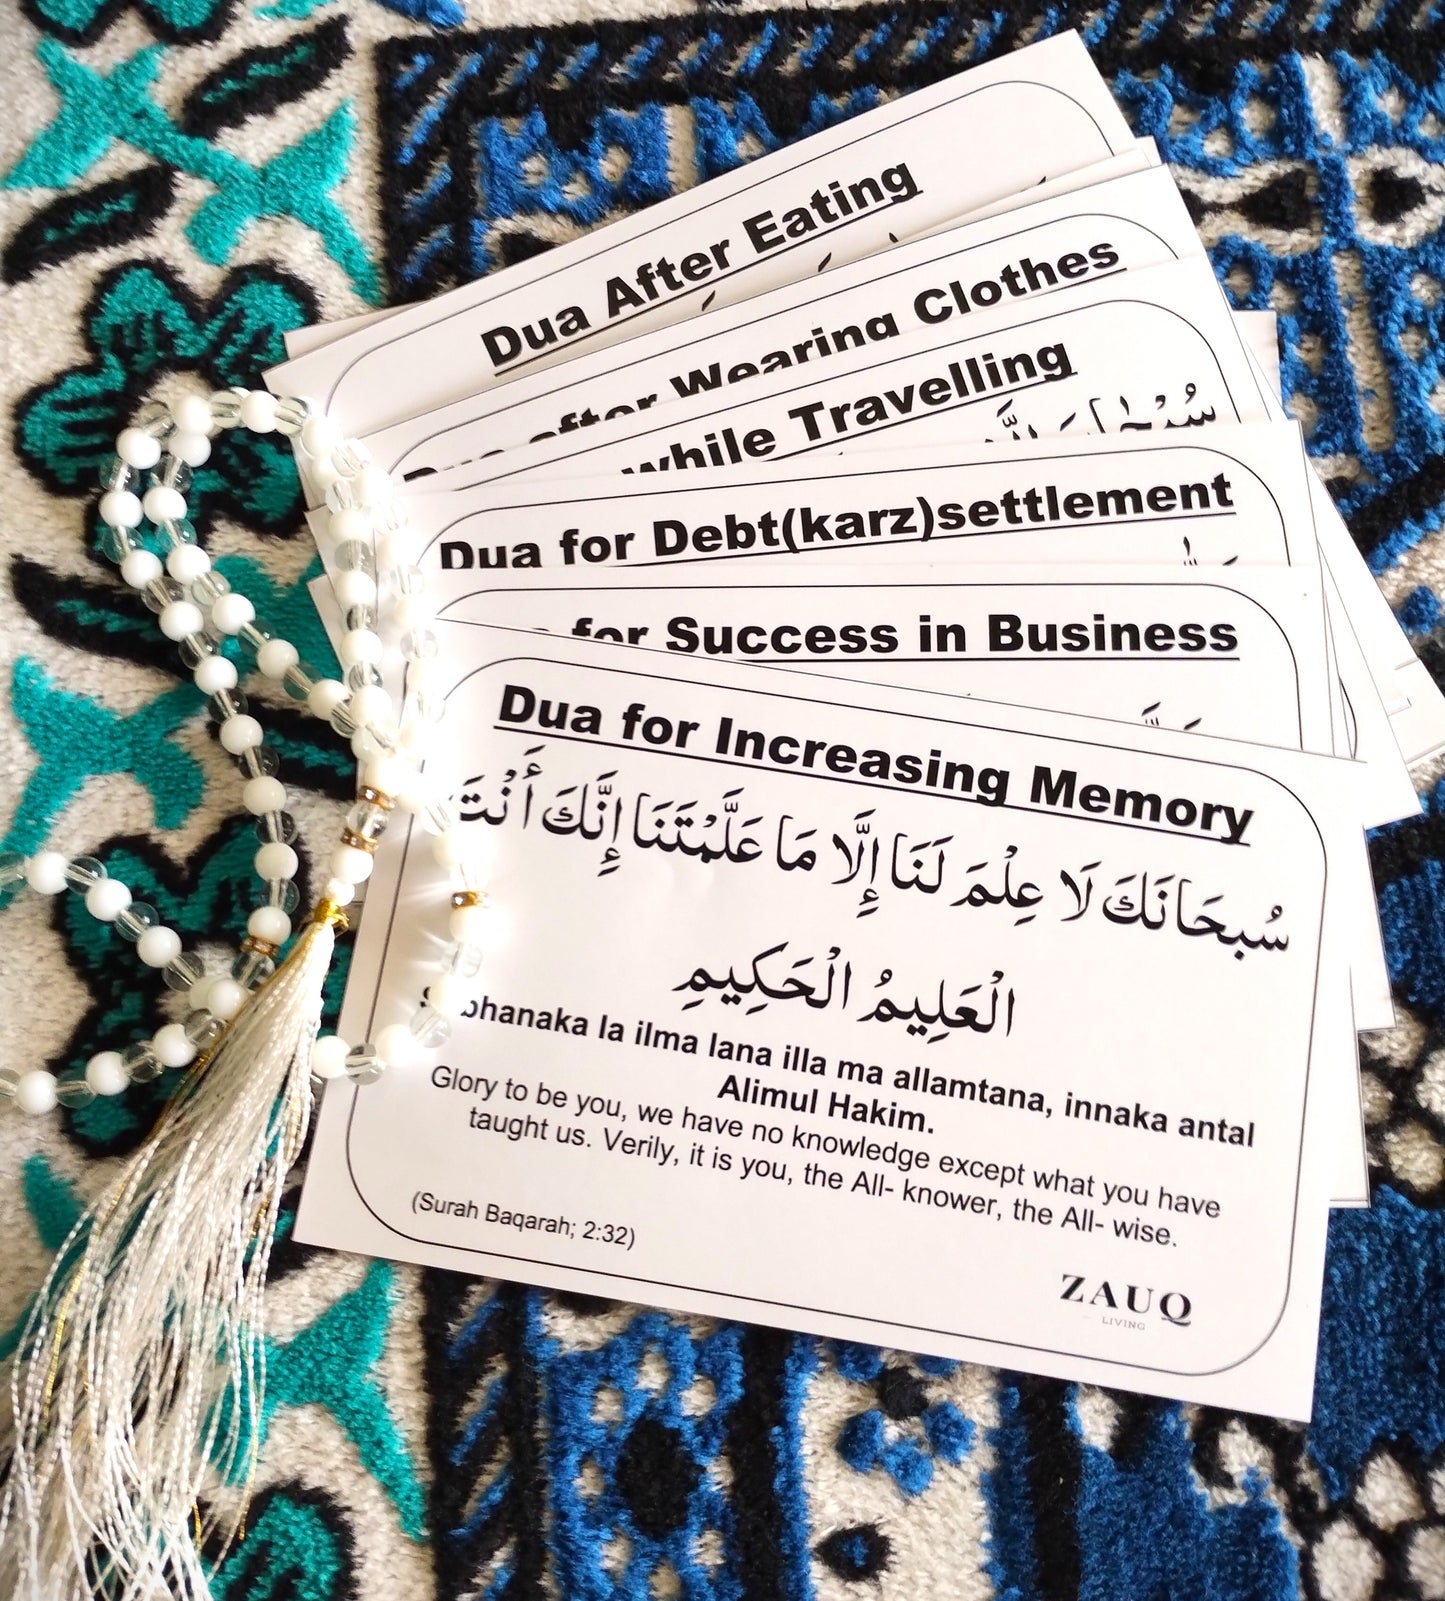 Dua After Eating
after Wearing Clothes
while Travelling
Dua for Debt(karz)settlement
for Success in Business
Dua for Increasing Memory
سُبحَانَكَ لَا عِلْمَ لَنَا إِلَّا مَا عَلَّمْتَنَا إِنَّكَ أَنْتَ
الْعَلِيمُ الْحَكِيمِ
la ilma lana illa ma allamtana, innaka antal
Alimul Hakim.
Glory to be you, we have no knowledge except what you have
taught us. Verily, it is you, the All- knower, the All- wise.
(Surah Baqarah; 2:32)
ZAUQ
LIVING